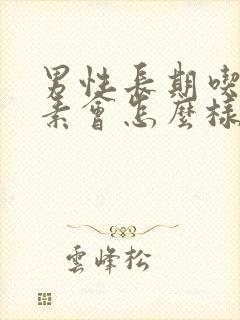 男性長期喫
素會怎麼樣
雲峰松